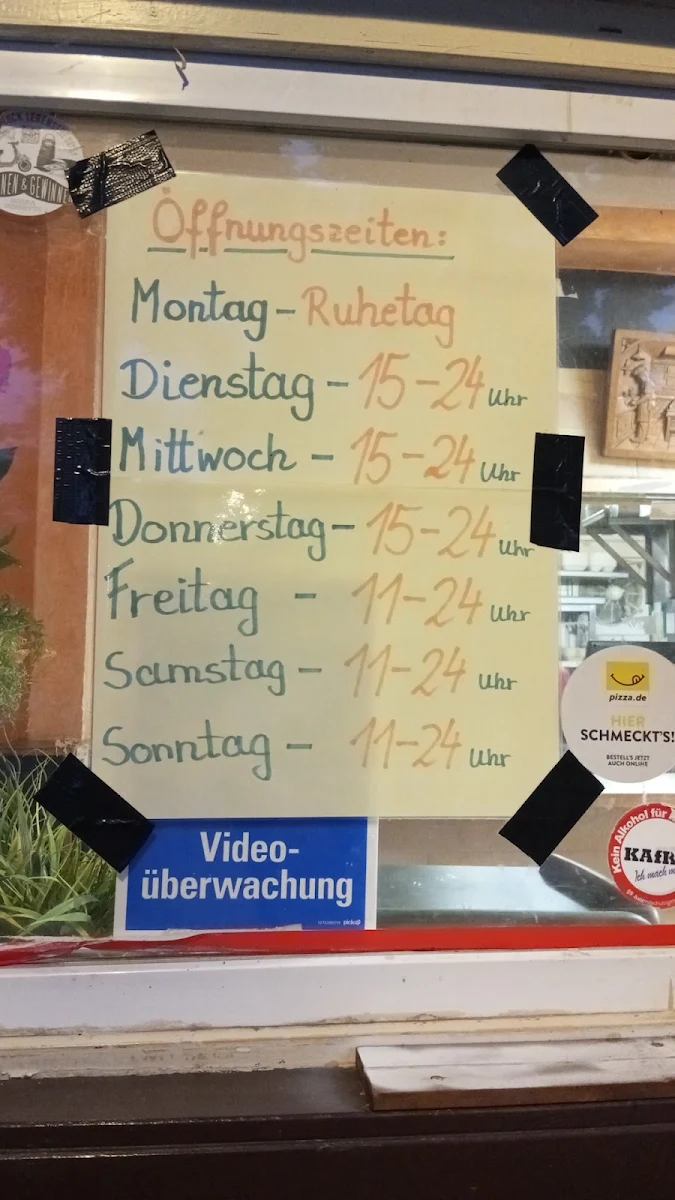 Öffnungszeiten:
Montag - Ruhetag
Dienstag - 15-24 Uhr
Mittwoch - 15-24 Uhr
Donnerstag - 15-24 Uhr
Freitag - 11-24 Uhr
Samstag - 11-24 Uhr
Sonntag - 11-24 Uhr
pizza.de
HIER
SCHMECKT'S!
BESTELL'S JETZT
AUCH ONLINE
Kein Alkohol für
Ich mach
Video-
überwachung